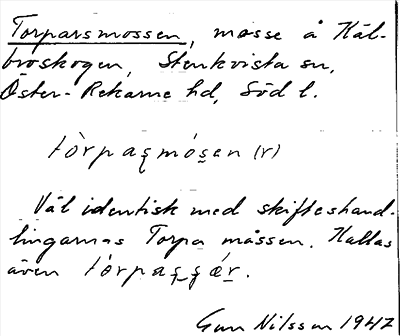 Torparsmossen, mosse å Käl-
broskogen, Stenkvista sn,
Öster-Rekarne hd, Söd l.
Väl identisk med skifteshand-
lingarnas Torpa måssen. Kallas
även
Gun Nilsson 1947